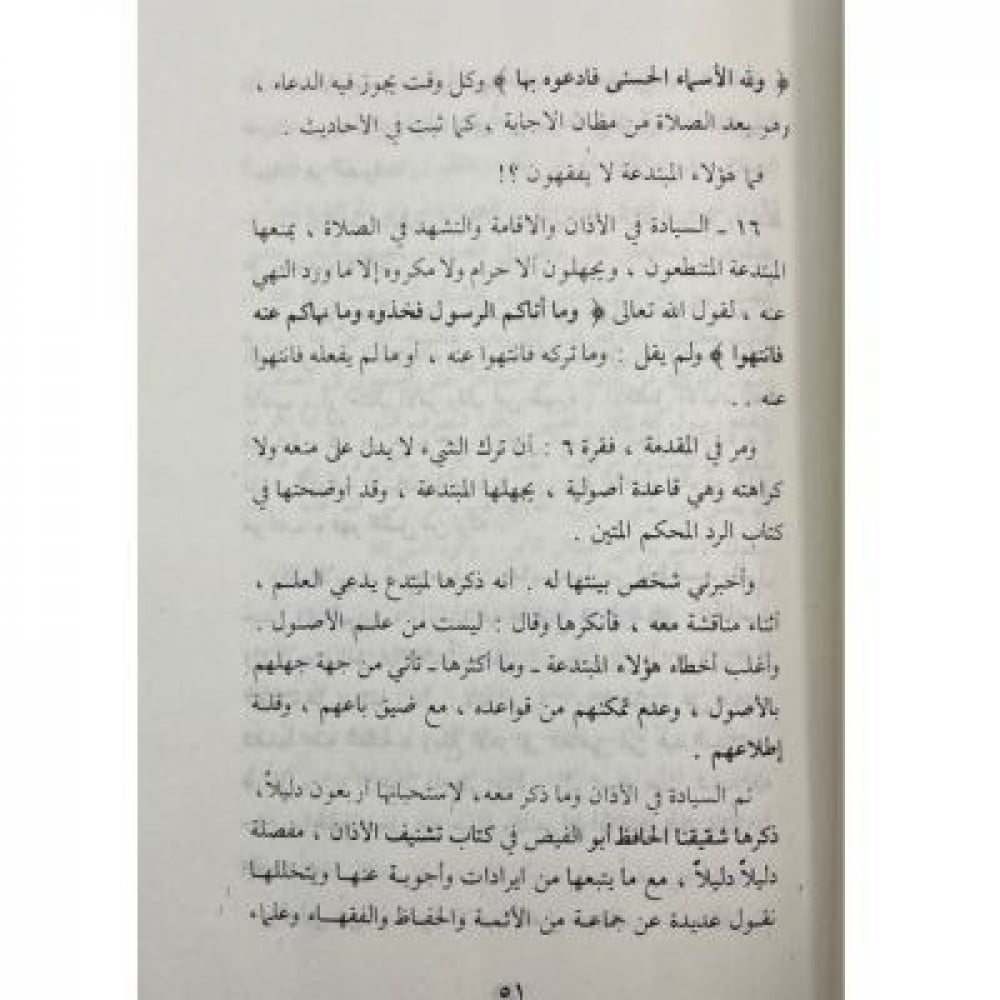 ﴿ ولله الأسماء الحسنى فادعوه بها ﴾ وكل وقت يجوز فيه الدعاء ،
وهو بعد الصلاة من مظان الاجابة ، كما ثبت في الأحاديث .
فما هؤلاء المبتدعة لا يفقهون ؟!
١٦ ـ السيادة في الأذان والاقامة والتشهد في الصلاة ، يمنعها
المبتدعة المتنطعون ، ويجهلون ألا حرام ولا مكروه إلا ما ورد النهي
عنه ، لقول الله تعالى ﴿ وما أتاكم الرسول فخذوه وما نهاكم عنه
فانتهوا ﴾ ولم يقل : وما تركه فانتهوا عنه ، أو ما لم يفعله فانتهوا
عنه . .
ومر في المقدمة ، فقرة ٦ : أن ترك الشيء لا يدل على منعه ولا
كراهته وهي قاعدة أصولية ، يجهلها المبتدعة ، وقد أوضحتها في
كتاب الرد المحكم المتين .
وأخبرني شخص بينتها له . أنه ذكرها لمبتدع يدعي العلم ،
أثناء مناقشة معه ، فأنكرها وقال : ليست من علم الأصول .
وأغلب أخطاء هؤلاء المبتدعة ـ وما أكثرها ـ تأتي من جهة جهلهم
بالأصول ، وعدم تمكنهم من قواعده ، مع ضيق باعهم ، وقلة
إطلاعهم .
ثم السيادة في الأذان وما ذكر معه، لاستحبابها أربعون دليلاً،
ذكرها شقيقنا الحافظ أبو الفيض في كتاب تشنيف الأذان ، مفصلة
دليلاً دليلاً ، مع ما يتبعها من ايرادات وأجوبة عنها ويتخللها
نقول عديدة عن جماعة من الأئمة والحفاظ والفقهاء وعلماء
٥١